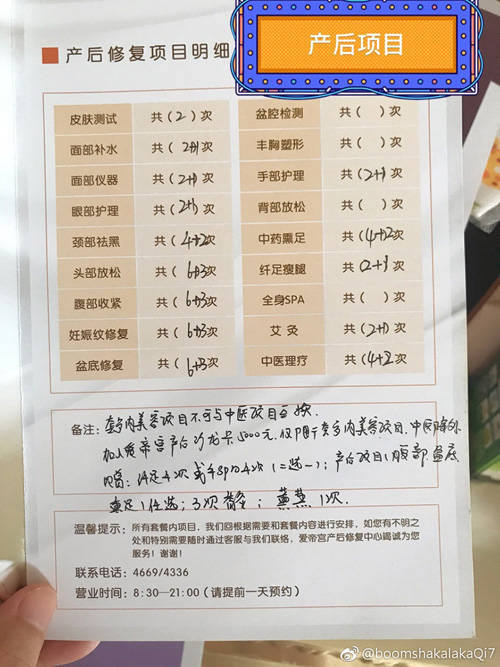 产后修复项目明细
产后项目
皮肤测试 共(2)次 盆腔检测 共( )次
面部补水 共(2+1)次 丰胸塑形 共( )次
面部仪器 共(2+1)次 手部护理 共(2+1)次
眼部护理 共(2+1)次 背部放松 共( )次
颈部祛黑 共(4+2)次 中药熏足 共(4+2)次
头部放松 共(6+3)次 纤足瘦腿 共(2+1)次
腹部收紧 共(6+3)次 全身SPA 共( )次
妊娠纹修复 共(6+3)次 艾灸 共(2+1)次
盆底修复 共(6+3)次 中医理疗 共(4+2)次
备注:套餐内美容项目不可与中医项目互换.
加入爱帝宫产后沙龙卡5000元.仅限于套餐内美容项目.中医除外
足4次或手SPA4次(二选一);产后项目:腹部盆底
任选;3次 ;熏蒸1次.
温馨提示:所有套餐内项目,我们回根据需要和套餐内容进行安排,如您有不明之
处和特别需要随时通过客服与我们联络,爱帝宫产后修复中心竭诚为您
服务!谢谢!
联系电话:4669/4336
营业时间:8:30—21:00(请提前一天预约)
@boomshakalakaQi7